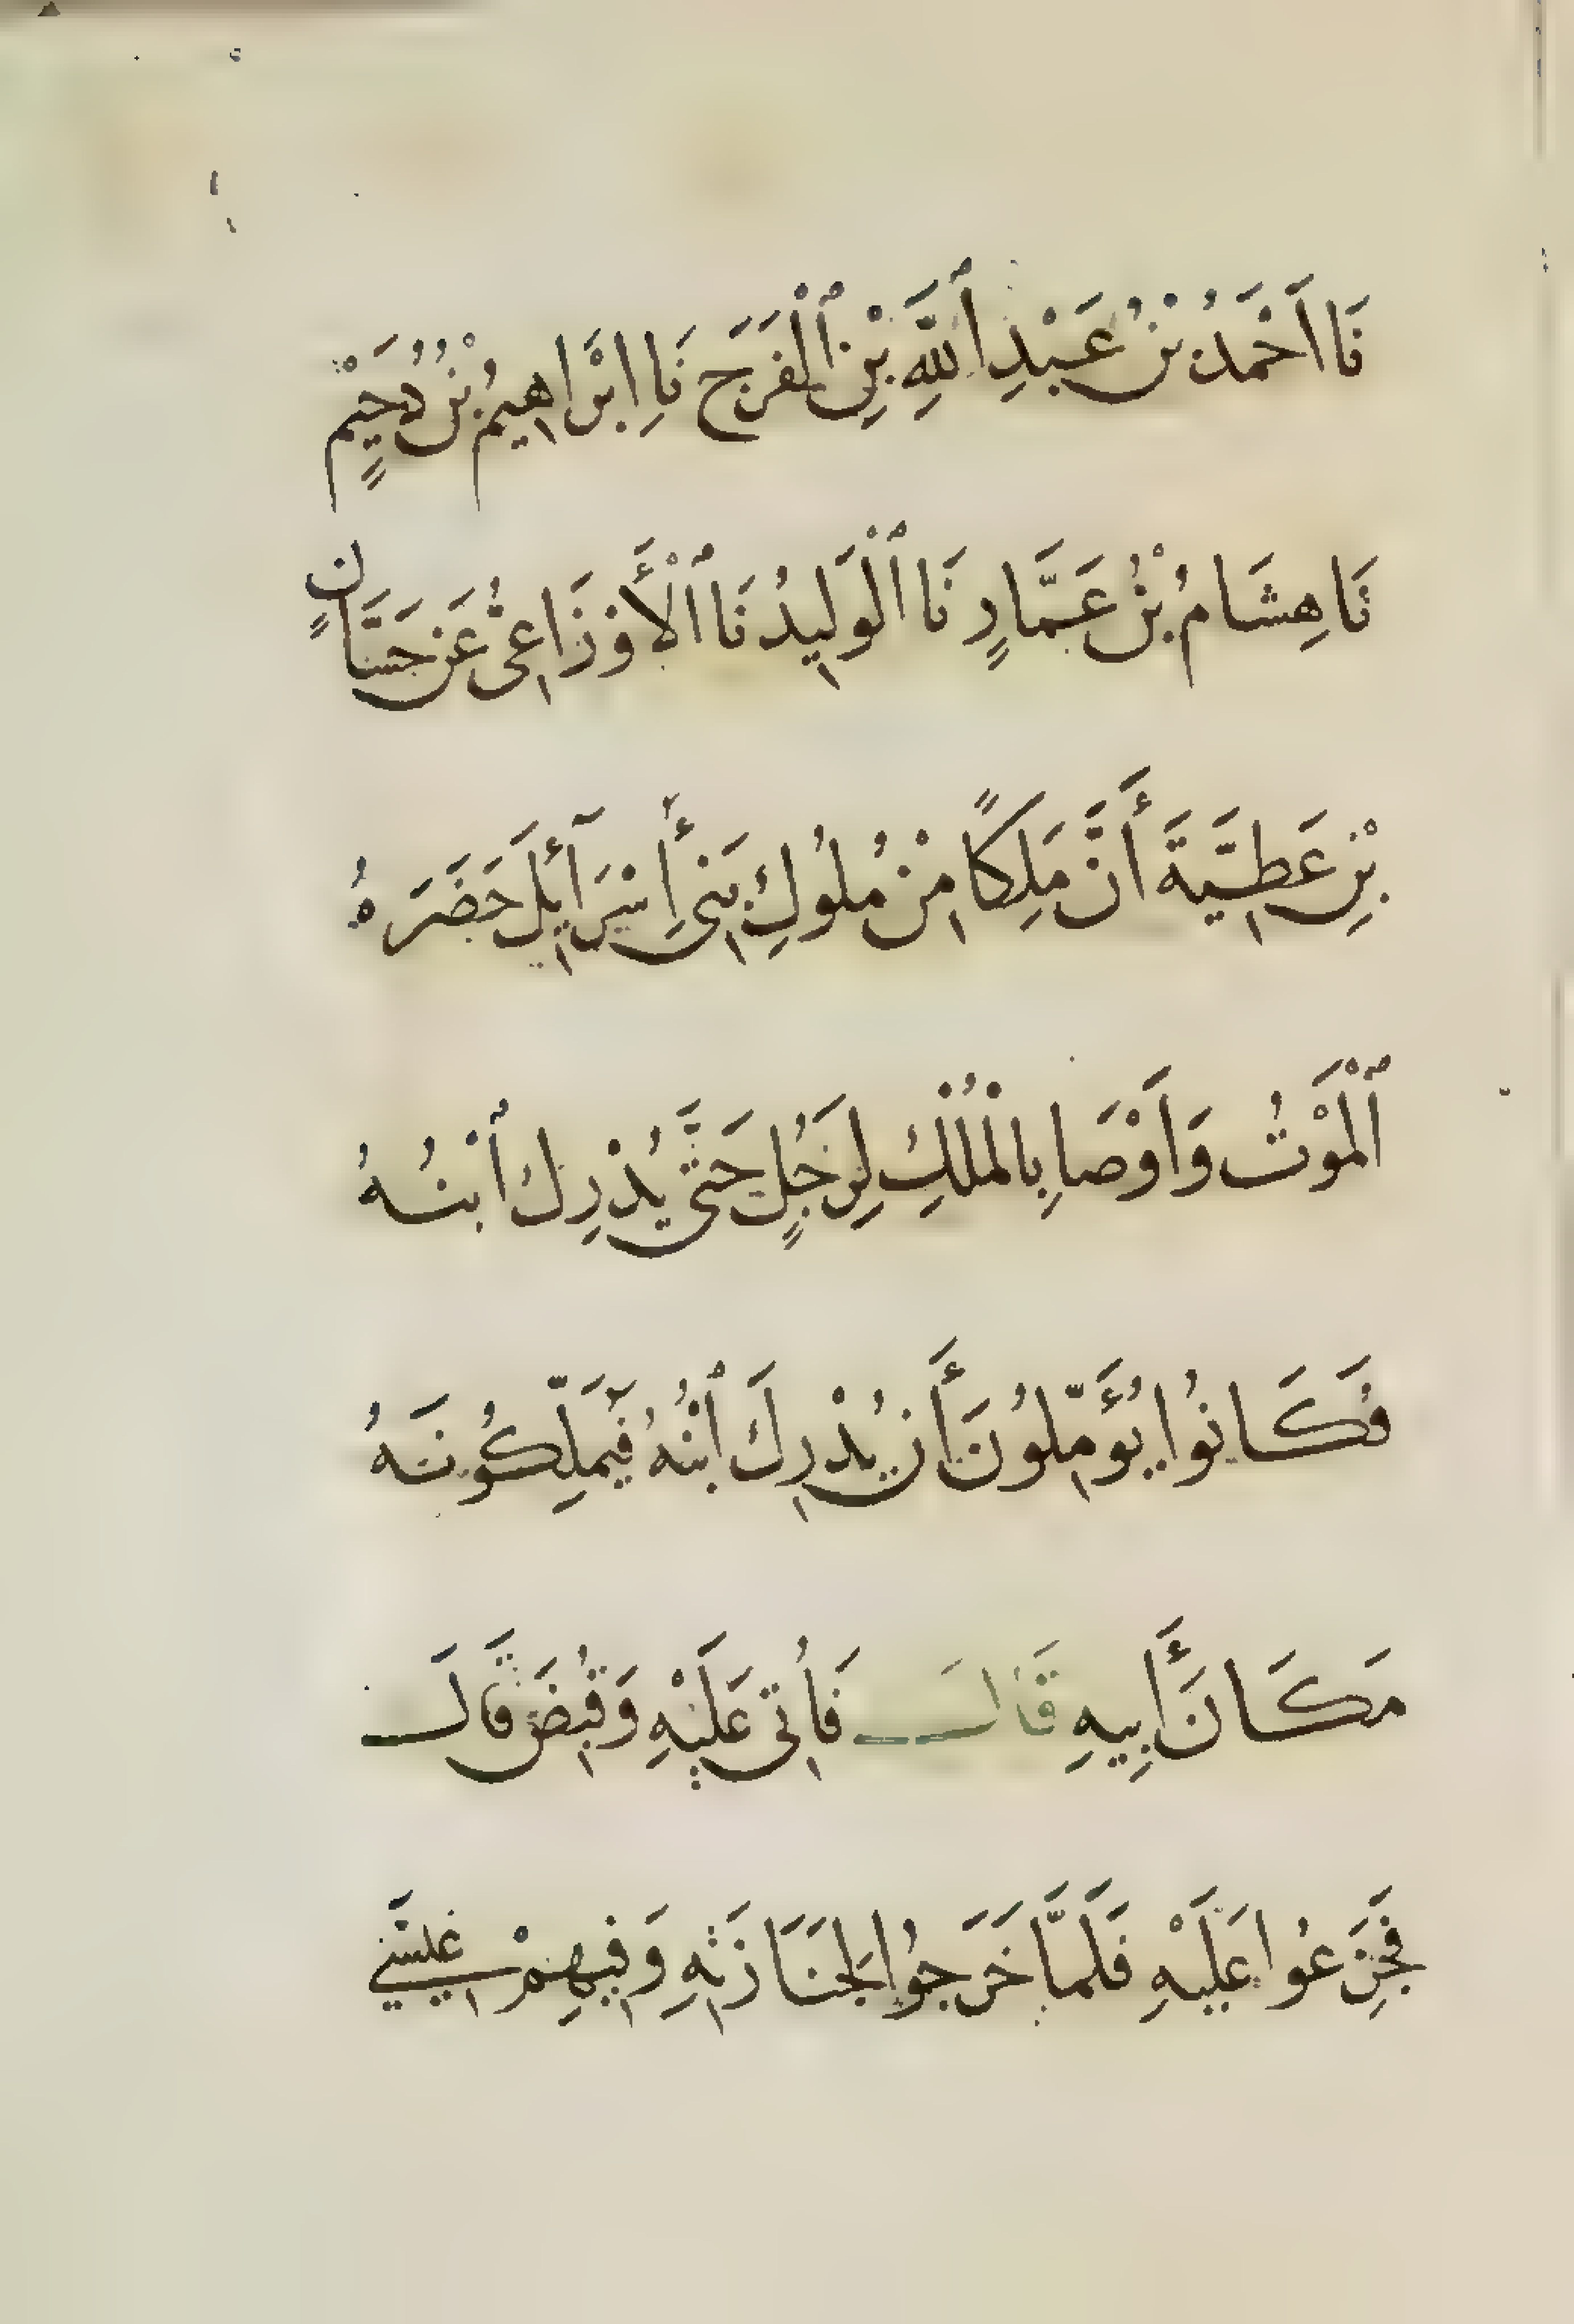 نَا اَحْمَدُ بْنُ عَبْدِ ٱللَّهِ بْنِ ٱلْفَرَجِ نَا اِبْرَاهِيمُ بْنُ دُحَيْمٍ
نَا هِشَامُ بْنُ عَمَّارٍ نَا ٱلْوَلِيدُ نَا ٱلْأَوْزَاعِىُّ عَنْ حَسَّانٍ
بْنِ عَطِيَّةَ أَنَّ مَلِكًا مِنْ مُلُوكِ بَنِى إِسْرَآئِلَ حَضَرَهُ
ٱلْمَوْتُ وَاَوْصَا بِالْمُلْكِ لِرَجُلٍ حَتَّى يُدْرِكَ ٱبْنُهُ
فَكَانُوا يُؤَمِّلُونَ أَنْ يُدْرِكَ ٱبْنُهُ فَيُمَلِّكُونَهُ
مَكَانَ أَبِيهِ قَالَ فَأُتِى عَلَيْهِ وَقُبِضَ قَالَ
فَجَزِعُوا عَلَيْهِ فَلَمَّا خَرَجُوا لِجَنَازَتِهِ وَفِيهِمْ عِيسَى